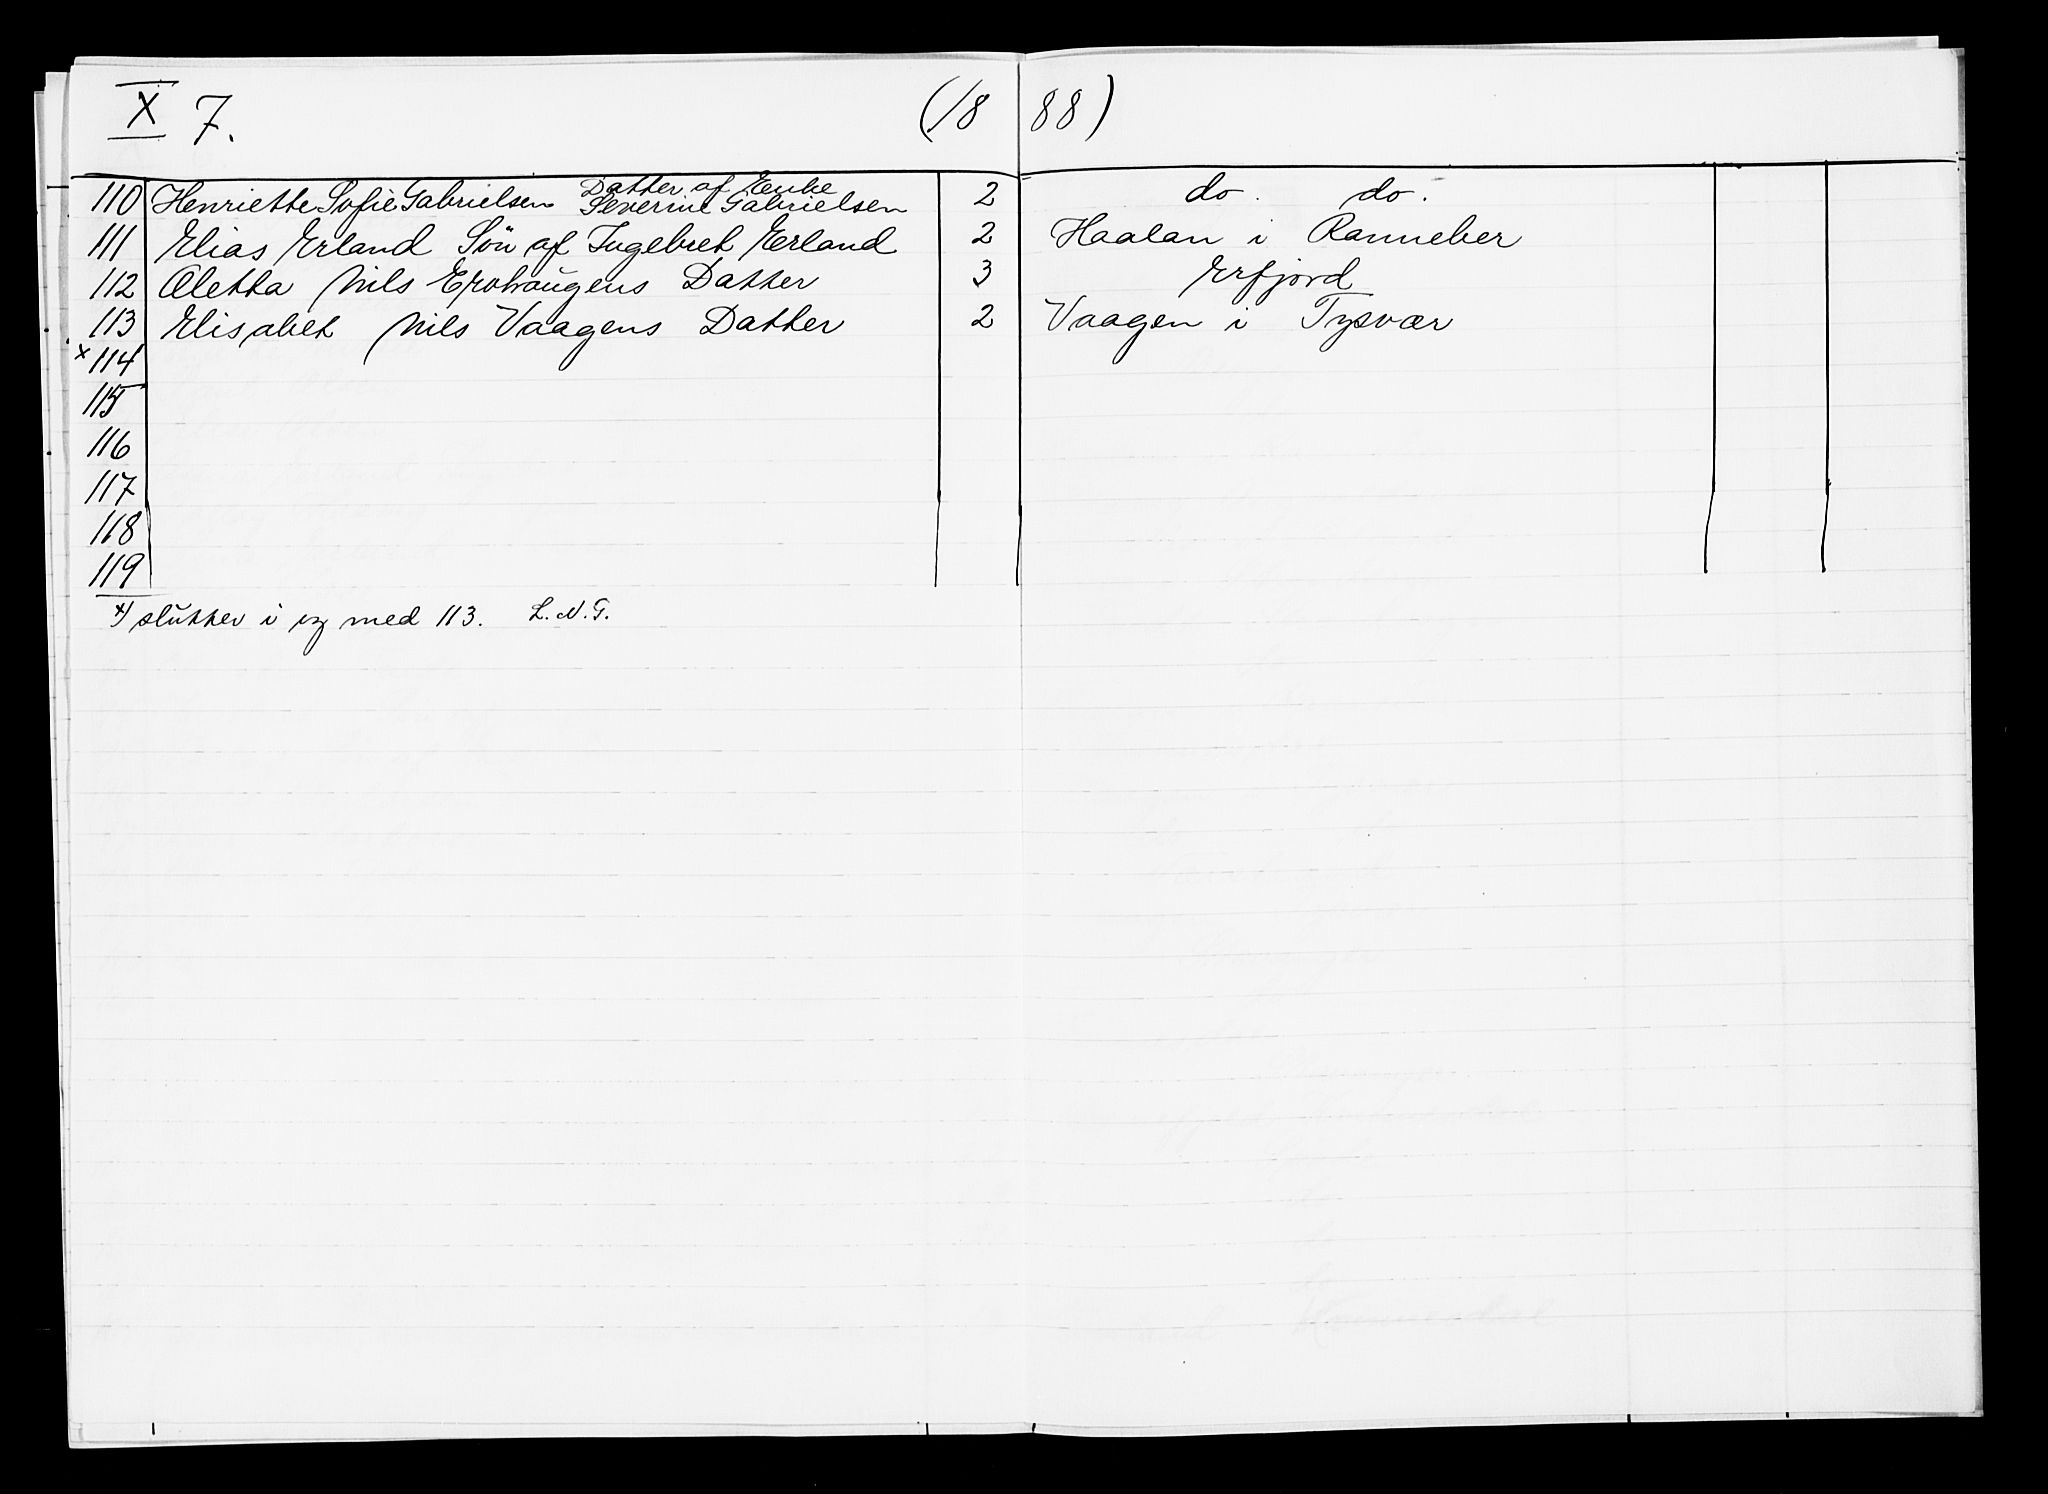 X 7. (18 88)
110 Henriette Sofie Gabrielsen Datter af Enke Severine Gabrielsen 2 do. do.
111 Elias Erland Sön af Ingebret Erland 2 Haalan i Ranneber
112 Aletta Nils Datter 3 Erfjord
113 Elisabet Nils Vaagens Datter 2 Vaagen i Tysvær
x 114
115
116
117
118
119
x) slutter i og med 113. L.N.G.